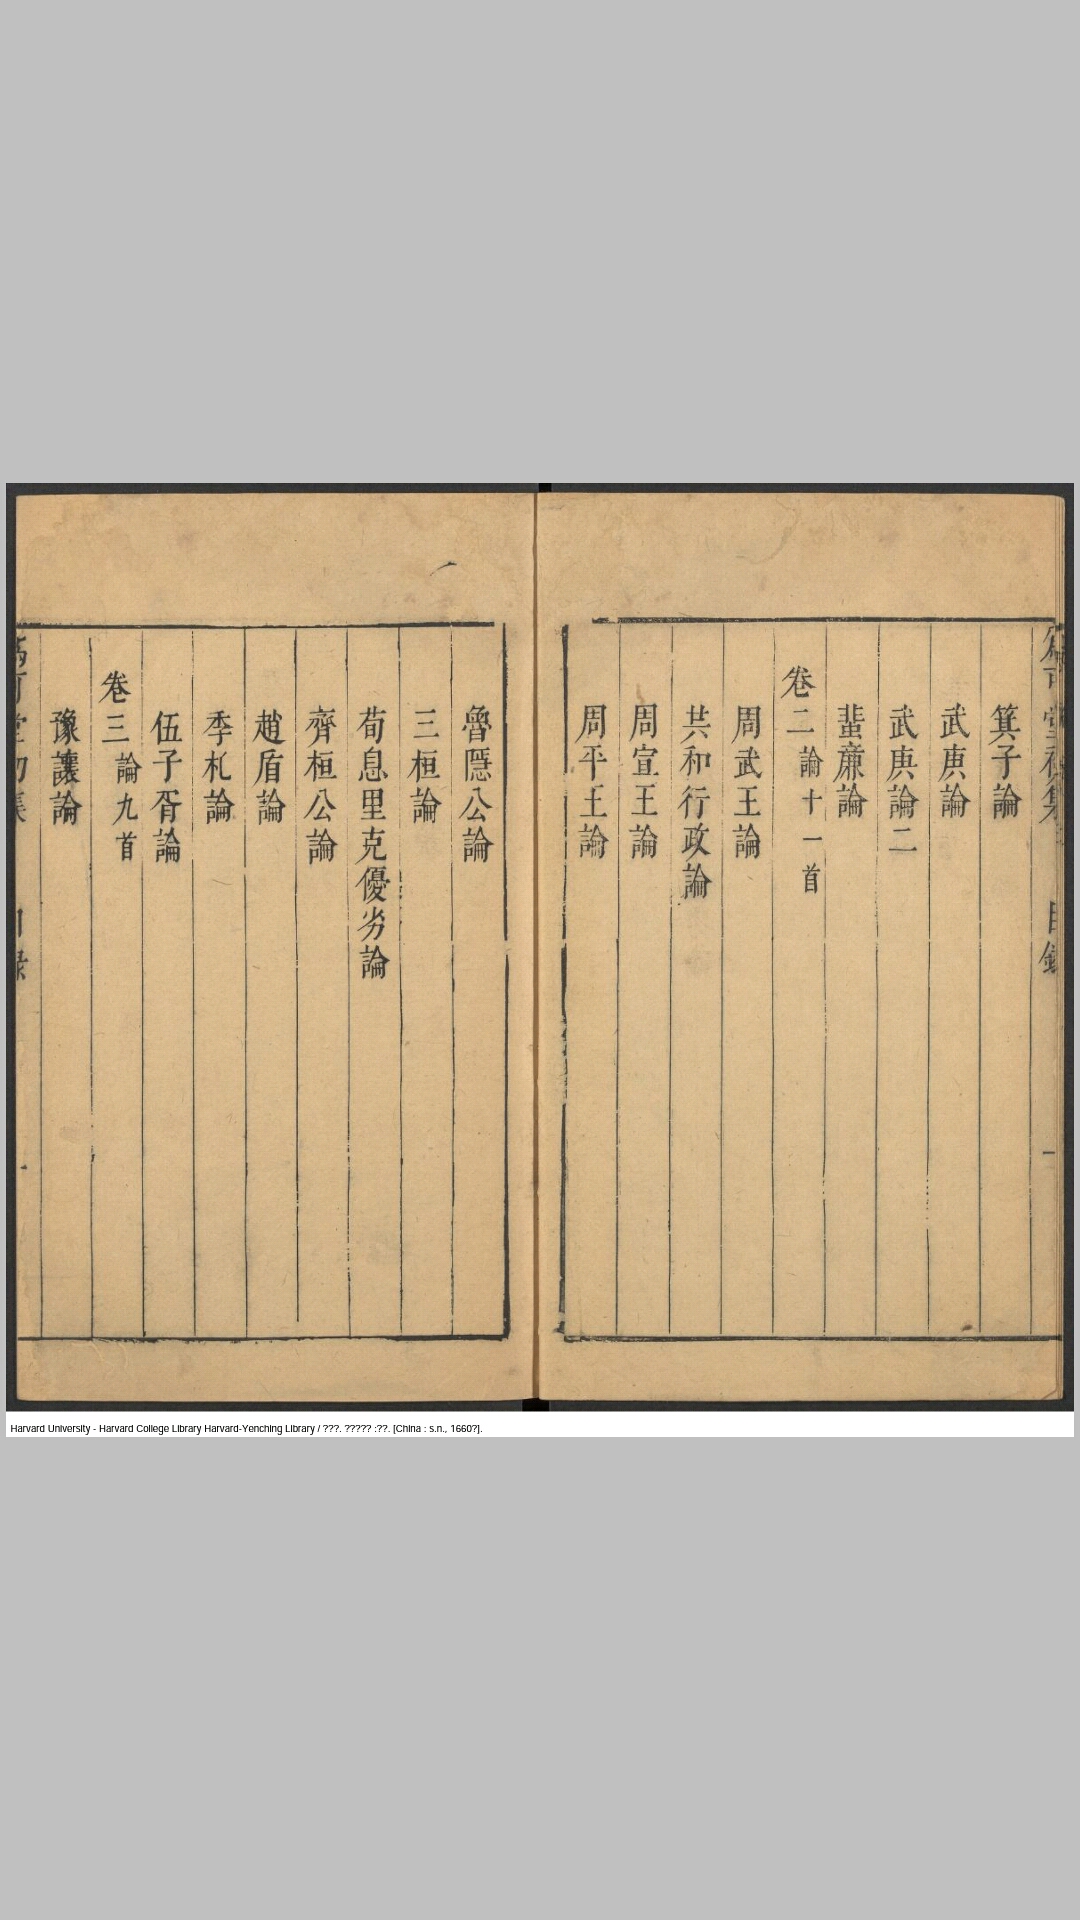 箕子論
武庚論
武庚論二
蜚廉論
卷二 論十一首
周武王論
共和行政論
周宣王論
周平王論
魯隱公論
三桓論
荀息里克優劣論
齊桓公論
趙盾論
季札論
伍子胥論
卷三 論九首
豫讓論
Harvard University - Harvard College Library Harvard-Yenching Library / ???. ????? :??. [China : s.n., 1660?].